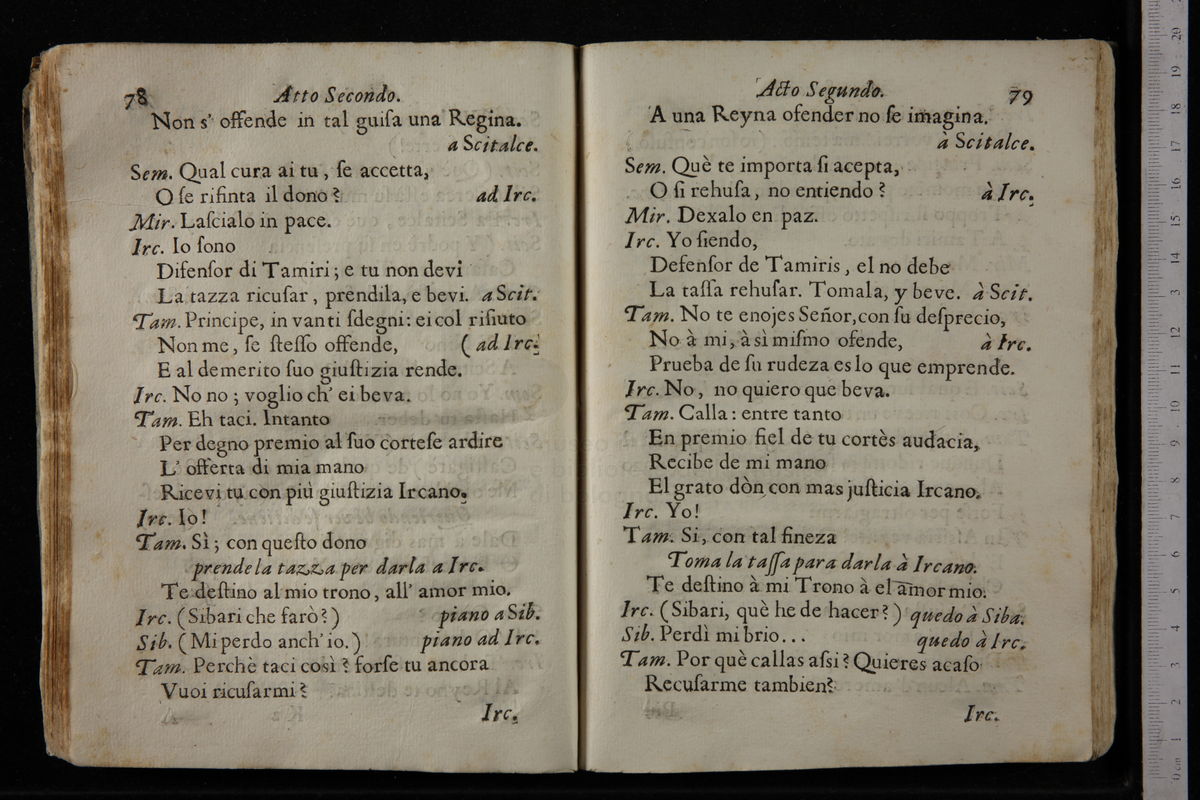 78 Atto Secondo.
Non s' offende in tal guiſa una Regina.
a Scitalce.
Sem. Qual cura ai tu, ſe accetta,
O ſe rifiuta il dono? ad Irc.
Mir. Laſcialo in pace.
Irc. Io ſono
Difenſor di Tamiri; e tu non devi
La tazza ricuſar, prendila, e bevi. a Scit.
Tam. Principe, in van ti ſdegni: ei col rifiuto
Non me, ſe ſteſſo offende, ( ad Irc.
E al demerito ſuo giuſtizia rende.
Irc. No no; voglio ch' ei beva.
Tam. Eh taci. Intanto
Per degno premio al ſuo corteſe ardire
L' offerta di mia mano
Ricevi tu con più giuſtizia Ircano.
Irc. Io!
Tam. Sì; con queſto dono
prende la tazza per darla a Irc.
Te deſtino al mio trono, all' amor mio.
Irc. (Sibari che farò?) piano a Sib.
Sib. (Mi perdo anch' io.) piano ad Irc.
Tam. Perchè taci così? forſe tu ancora
Vuoi ricuſarmi?
Irc.
Acto Segundo. 79
A una Reyna ofender no ſe imagina.
à Scitalce.
Sem. Què te importa ſi acepta,
O ſi rehuſa, no entiendo? à Irc.
Mir. Dexalo en paz.
Irc. Yo ſiendo,
Defenſor de Tamiris, el no debe
La taſſa rehuſar. Tomala, y beve. à Scit.
Tam. No te enojes Señor, con ſu deſprecio,
No à mi, à sì miſmo ofende, à Irc.
Prueba de ſu rudeza es lo que emprende.
Irc. No, no quiero que beva.
Tam. Calla: entre tanto
En premio fiel de tu cortès audacia,
Recibe de mi mano
El grato dòn con mas juſticia Ircano.
Irc. Yo!
Tam. Si, con tal fineza
Toma la taſſa para darla à Ircano.
Te deſtino à mi Trono à el amor mio.
Irc. (Sibari, què he de hacer?) quedo à Siba.
Sib. Perdì mi brio... quedo à Irc.
Tam. Por què callas aſsi? Quieres acaſo
Recuſarme tambien?
Irc.